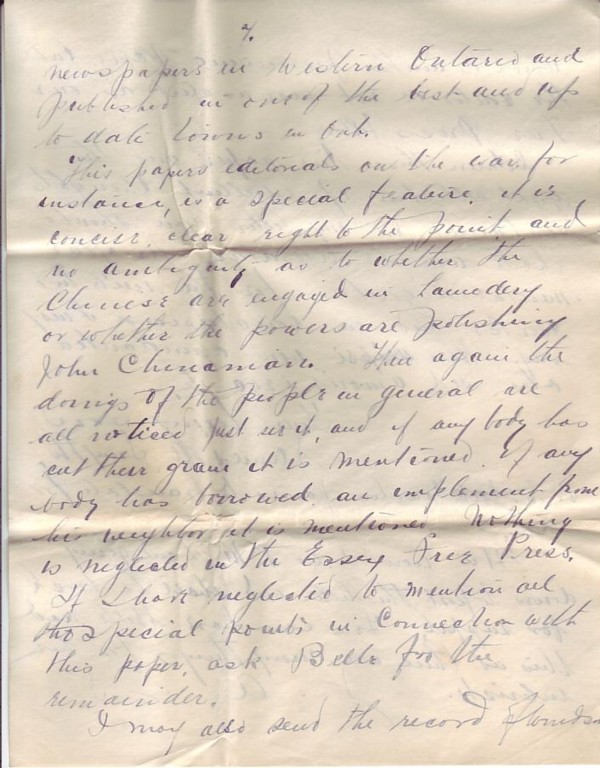 7.
newspapers in Western Ontario and
published in one of the best and up
to date towns in Ont.
This papers editorials on the war for
instance, is a special feature, it is
concise, clear, right to the point and
no ambiguity as to whether the
Chinese are engaged in Laundery
or whether the powers are polishing
John Chinaman. Then again the
doings of the people in general are
all noticed just see it, and if any body has
cut their grain it is mentioned. if any
body has borrowed an implement from
his neighbor it is mentioned Nothing
is neglected in the Essex Free Press.
If I have neglected to mention all
the special points in connection with
this paper, ask Belle for the
remainder.
I may also send the record of